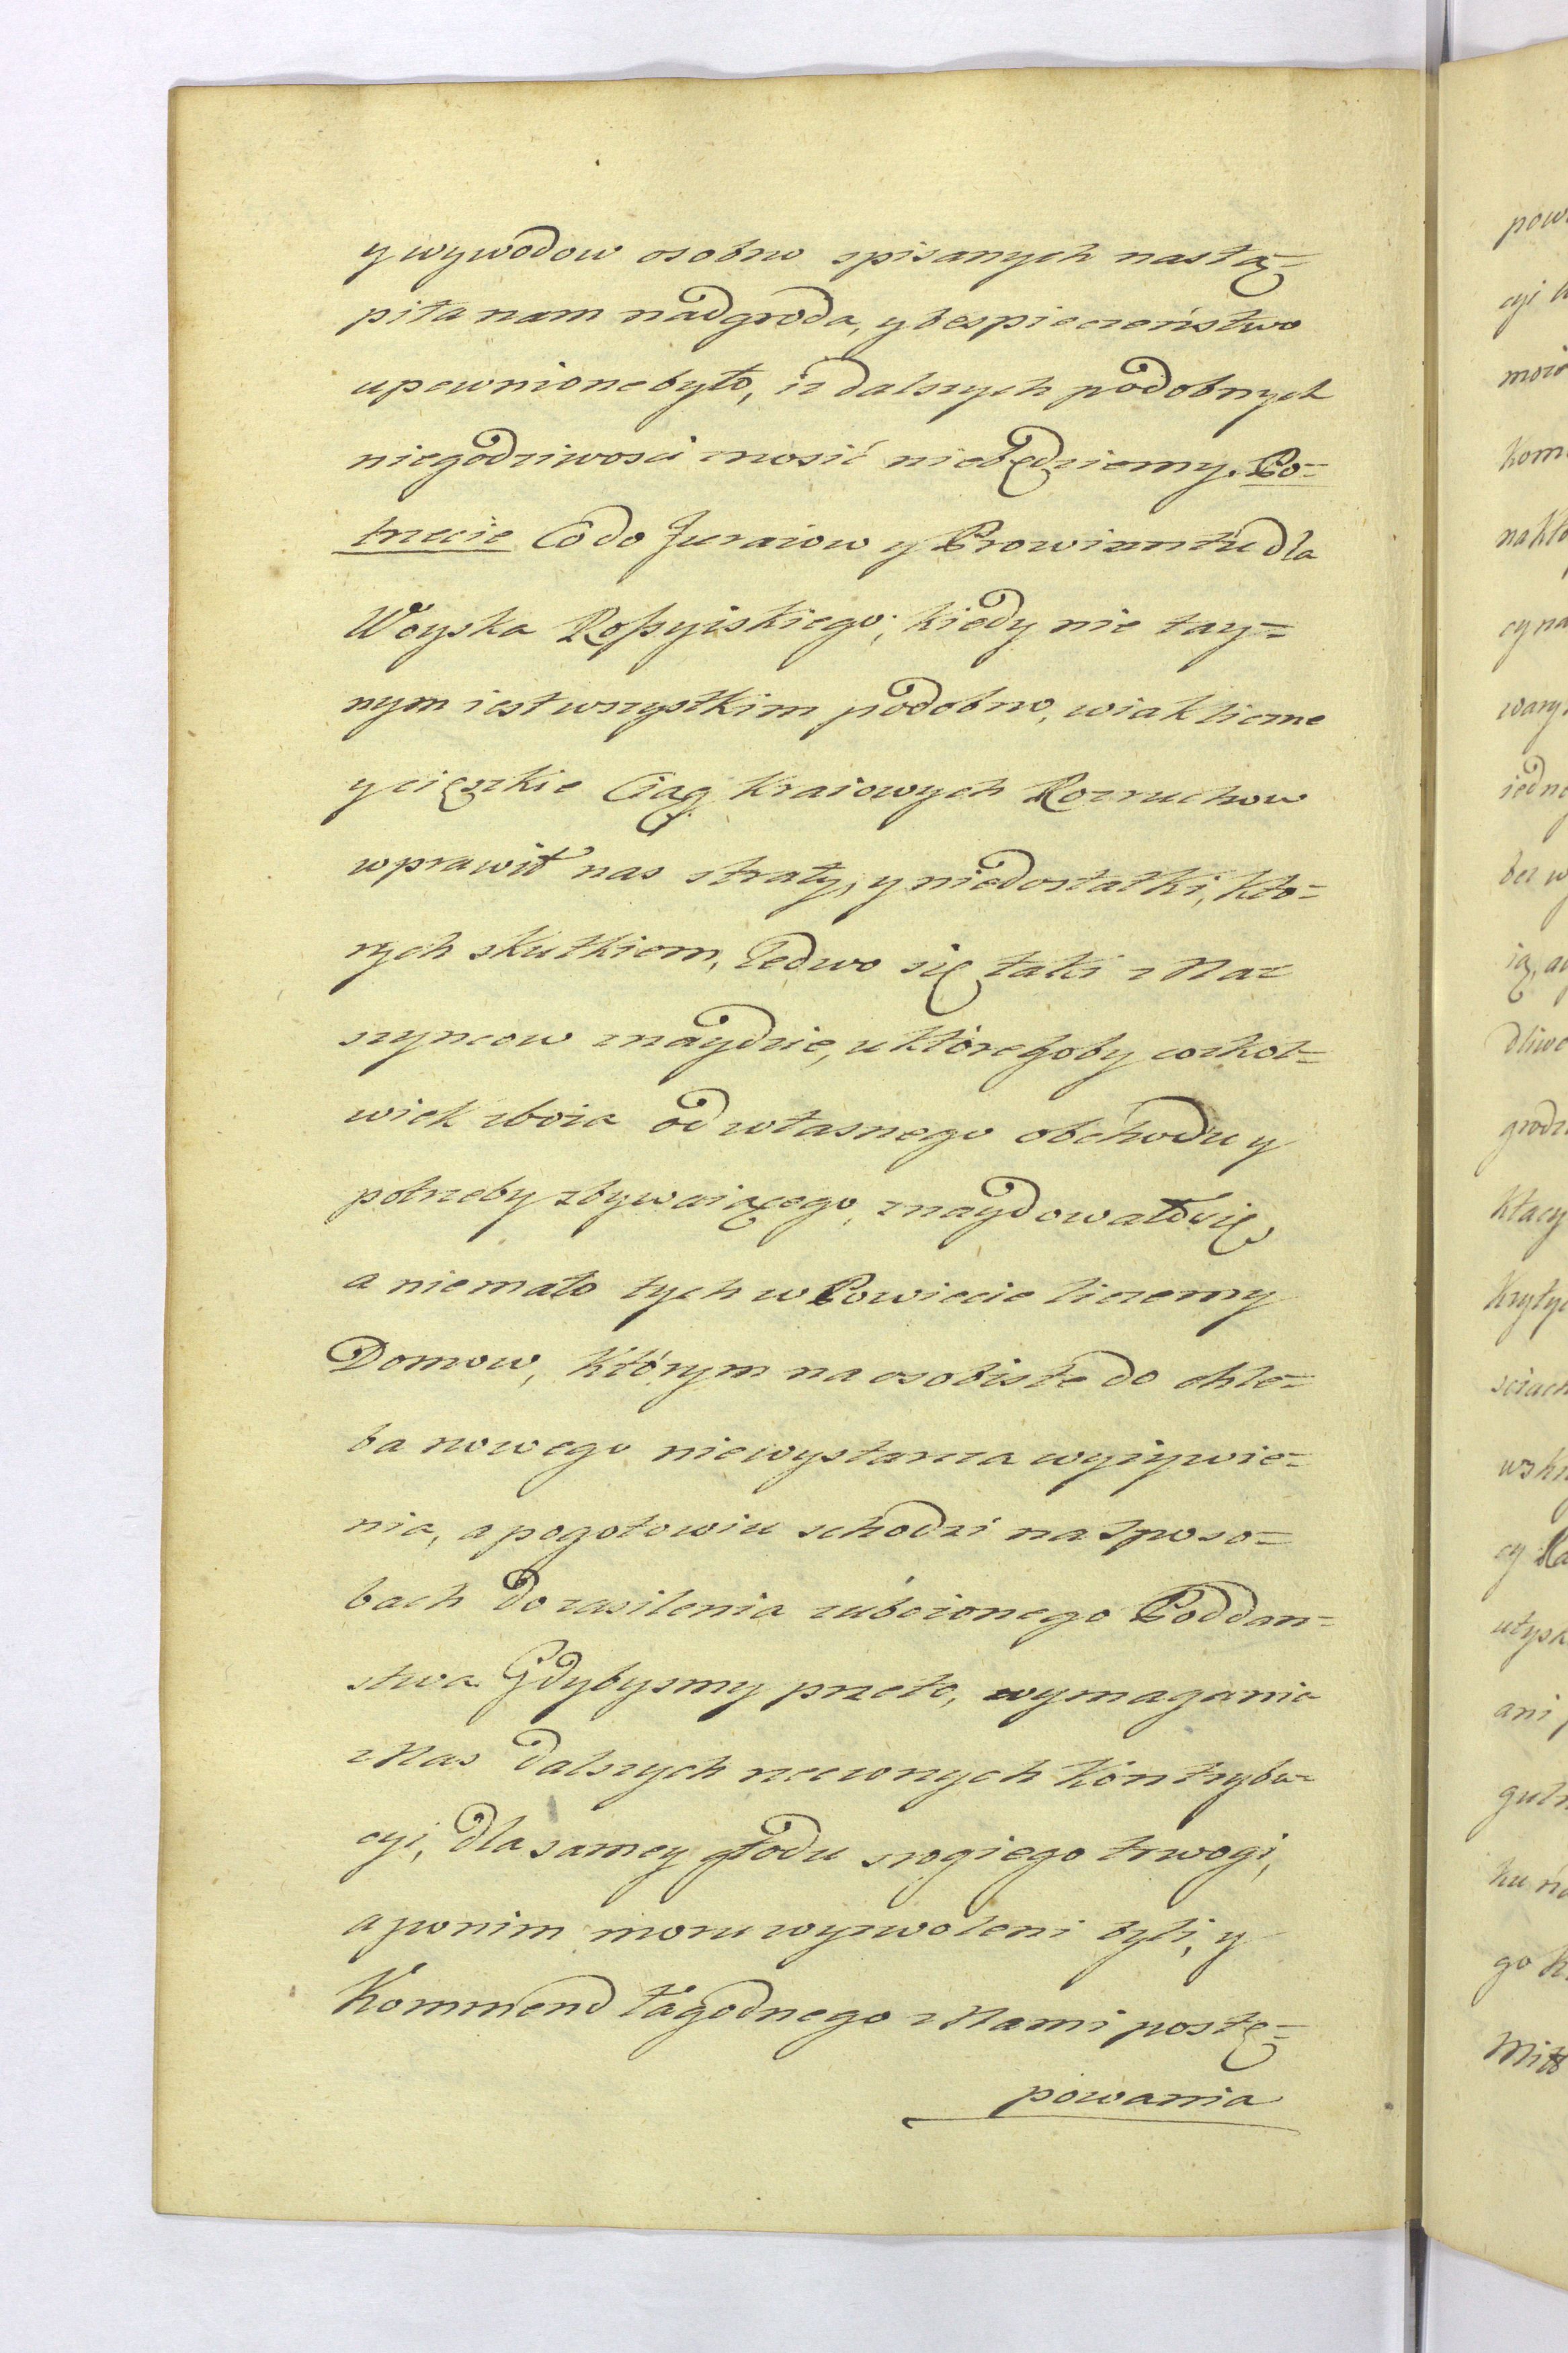 y wywodow osobno spisanych nastą=
piła nam nadgroda, y bespieczeństwo
upewnione było, iz dalszych podobnych
niegodziwosci znosić niebędziemy. Po=
trzecie Co do Furaiow y Prowiantu dla
Woyska Rossyiskiego; kiedy nie tay=
nym iest wszystkim podobno, wiak liczne
y cięszkie Ciąg kraiowych Rozruchow
wprawił nas straty, y niedostatki, kto=
rych skutkiem, ledwo się taki z Na=
szyncow znaydzie, u któregoby cożkol=
wiek zboża od własnego obchodu y
potrzeby zbywaiącego, znaydowało się
a niemało tych w Powiecie liczemy
Domow, którym na osobiste do chle=
ba nowego niewystarcza wyżywie=
nia, a pogotowiu schodzi na sposo=
bach do zasilenia zubożonego Poddan=
stwa. Gdybysmy przeto, wymagania
z Nas dalszych rzeczonych Kontrybu=
cyi, dla samey głodu srogiego trwogi,
a ponim moru wyzwoleni byli, y
Kommend łagodnego z Nami postę=
powania
pow
cyi
Kom
cy na
wary
iedne
bez w
ią, a
dliwo
grodz
kłacy
kryty
sciach
utysk
ani
go